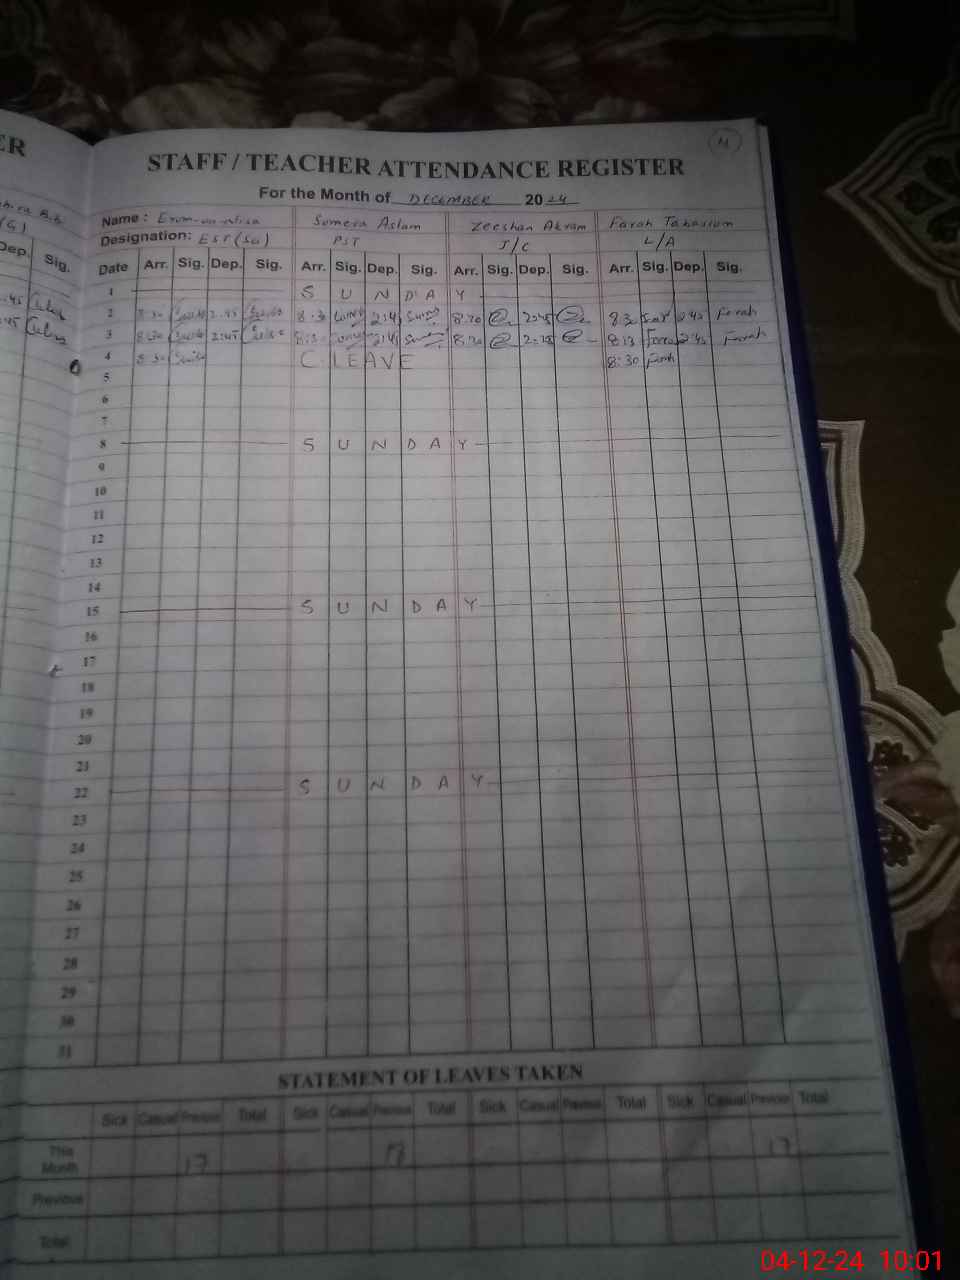 ER
11
STAFF / TEACHER ATTENDANCE REGISTER
For the Month of DECEMBER 2024
Name : Erum-un-nisa Sumera Aslam Zeeshan Akram Farah Tabassum
Designation: EST (Sci) PST J/C L/A
Dep. Sig. Date Arr. Sig. Dep. Sig. Arr. Sig. Dep. Sig. Arr. Sig. Dep. Sig. Arr. Sig. Dep. Sig.
1 S U N D A Y
2 8:30 2:45 8:30 2:45 8:30 2:45 8:30 2:45 Farah
3 8:30 2:45 8:30 2:45 8:30 2:45 8:30 2:45 Farah
4 8:30 C. LEAVE 8:30 Farah
5
6
7
8 S U N D A Y
9
10
11
12
13
14
15 S U N D A Y
16
17
18
19
20
21
22 S U N D A Y
23
24
25
26
27
28
29
30
31
STATEMENT OF LEAVES TAKEN
Sick Casual Previous Total Sick Casual Previous Total Sick Casual Previous Total Sick Casual Previous Total
This Month 17 17
Previous
Total
04-12-24 10:01